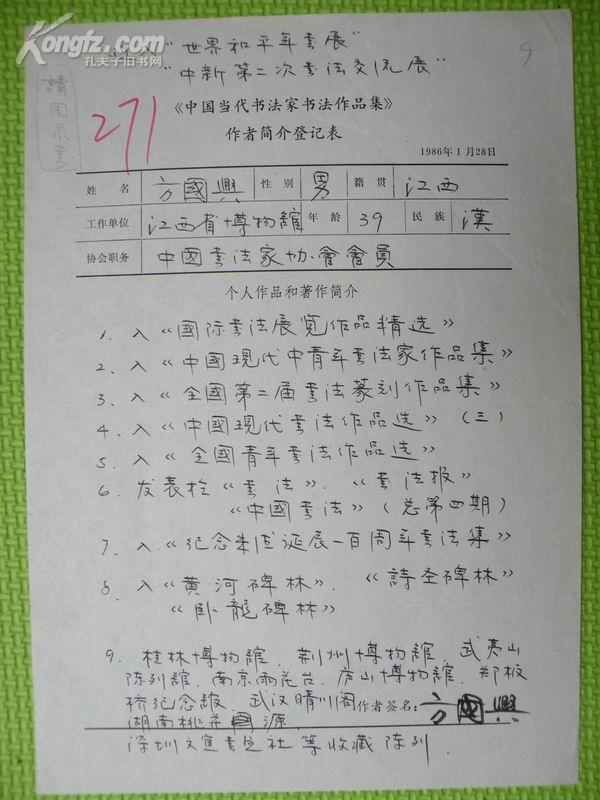 Kongfz.com
孔夫子旧书网
入“世界和平年書展”
9
“中新第二次書法交流展”
請用隶書
271
《中国当代书法家书法作品集》
作者简介登记表
1986年1月28日
姓名 方國興 性别 男 籍贯 江西
工作单位 江西省博物館 年龄 39 民族 漢
协会职务 中國書法家协会會員
个人作品和著作简介
1. 入《國际書法展览作品精选》
2、入《中國現代中青年書法家作品集》
3、入《全國第二届書法篆刻作品集》
4、入《中國現代書法作品选》(三)
5、入《全國青年書法作品选》
6. 发表於《書法》.《書法报》
《中國書法》(总第四期)
7、入《纪念朱德诞辰一百周年書法集》
8、入《黄河碑林》.《詩圣碑林》
《卧龍碑林》
9. 桂林博物館. 荆州博物館. 武夷山
陈列館. 南京雨花台. 庐山博物館. 郑板
桥纪念館. 武汉晴川阁 作者签名: 方國興
湖南桃花源
深圳文宝書画社等收藏陈列.